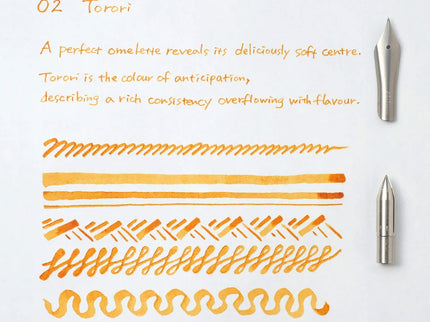 02 Torori
A perfect omelette reveals its deliciously soft centre.
Torori is the colour of anticipation,
describing a rich consistency overflowing with flavour.